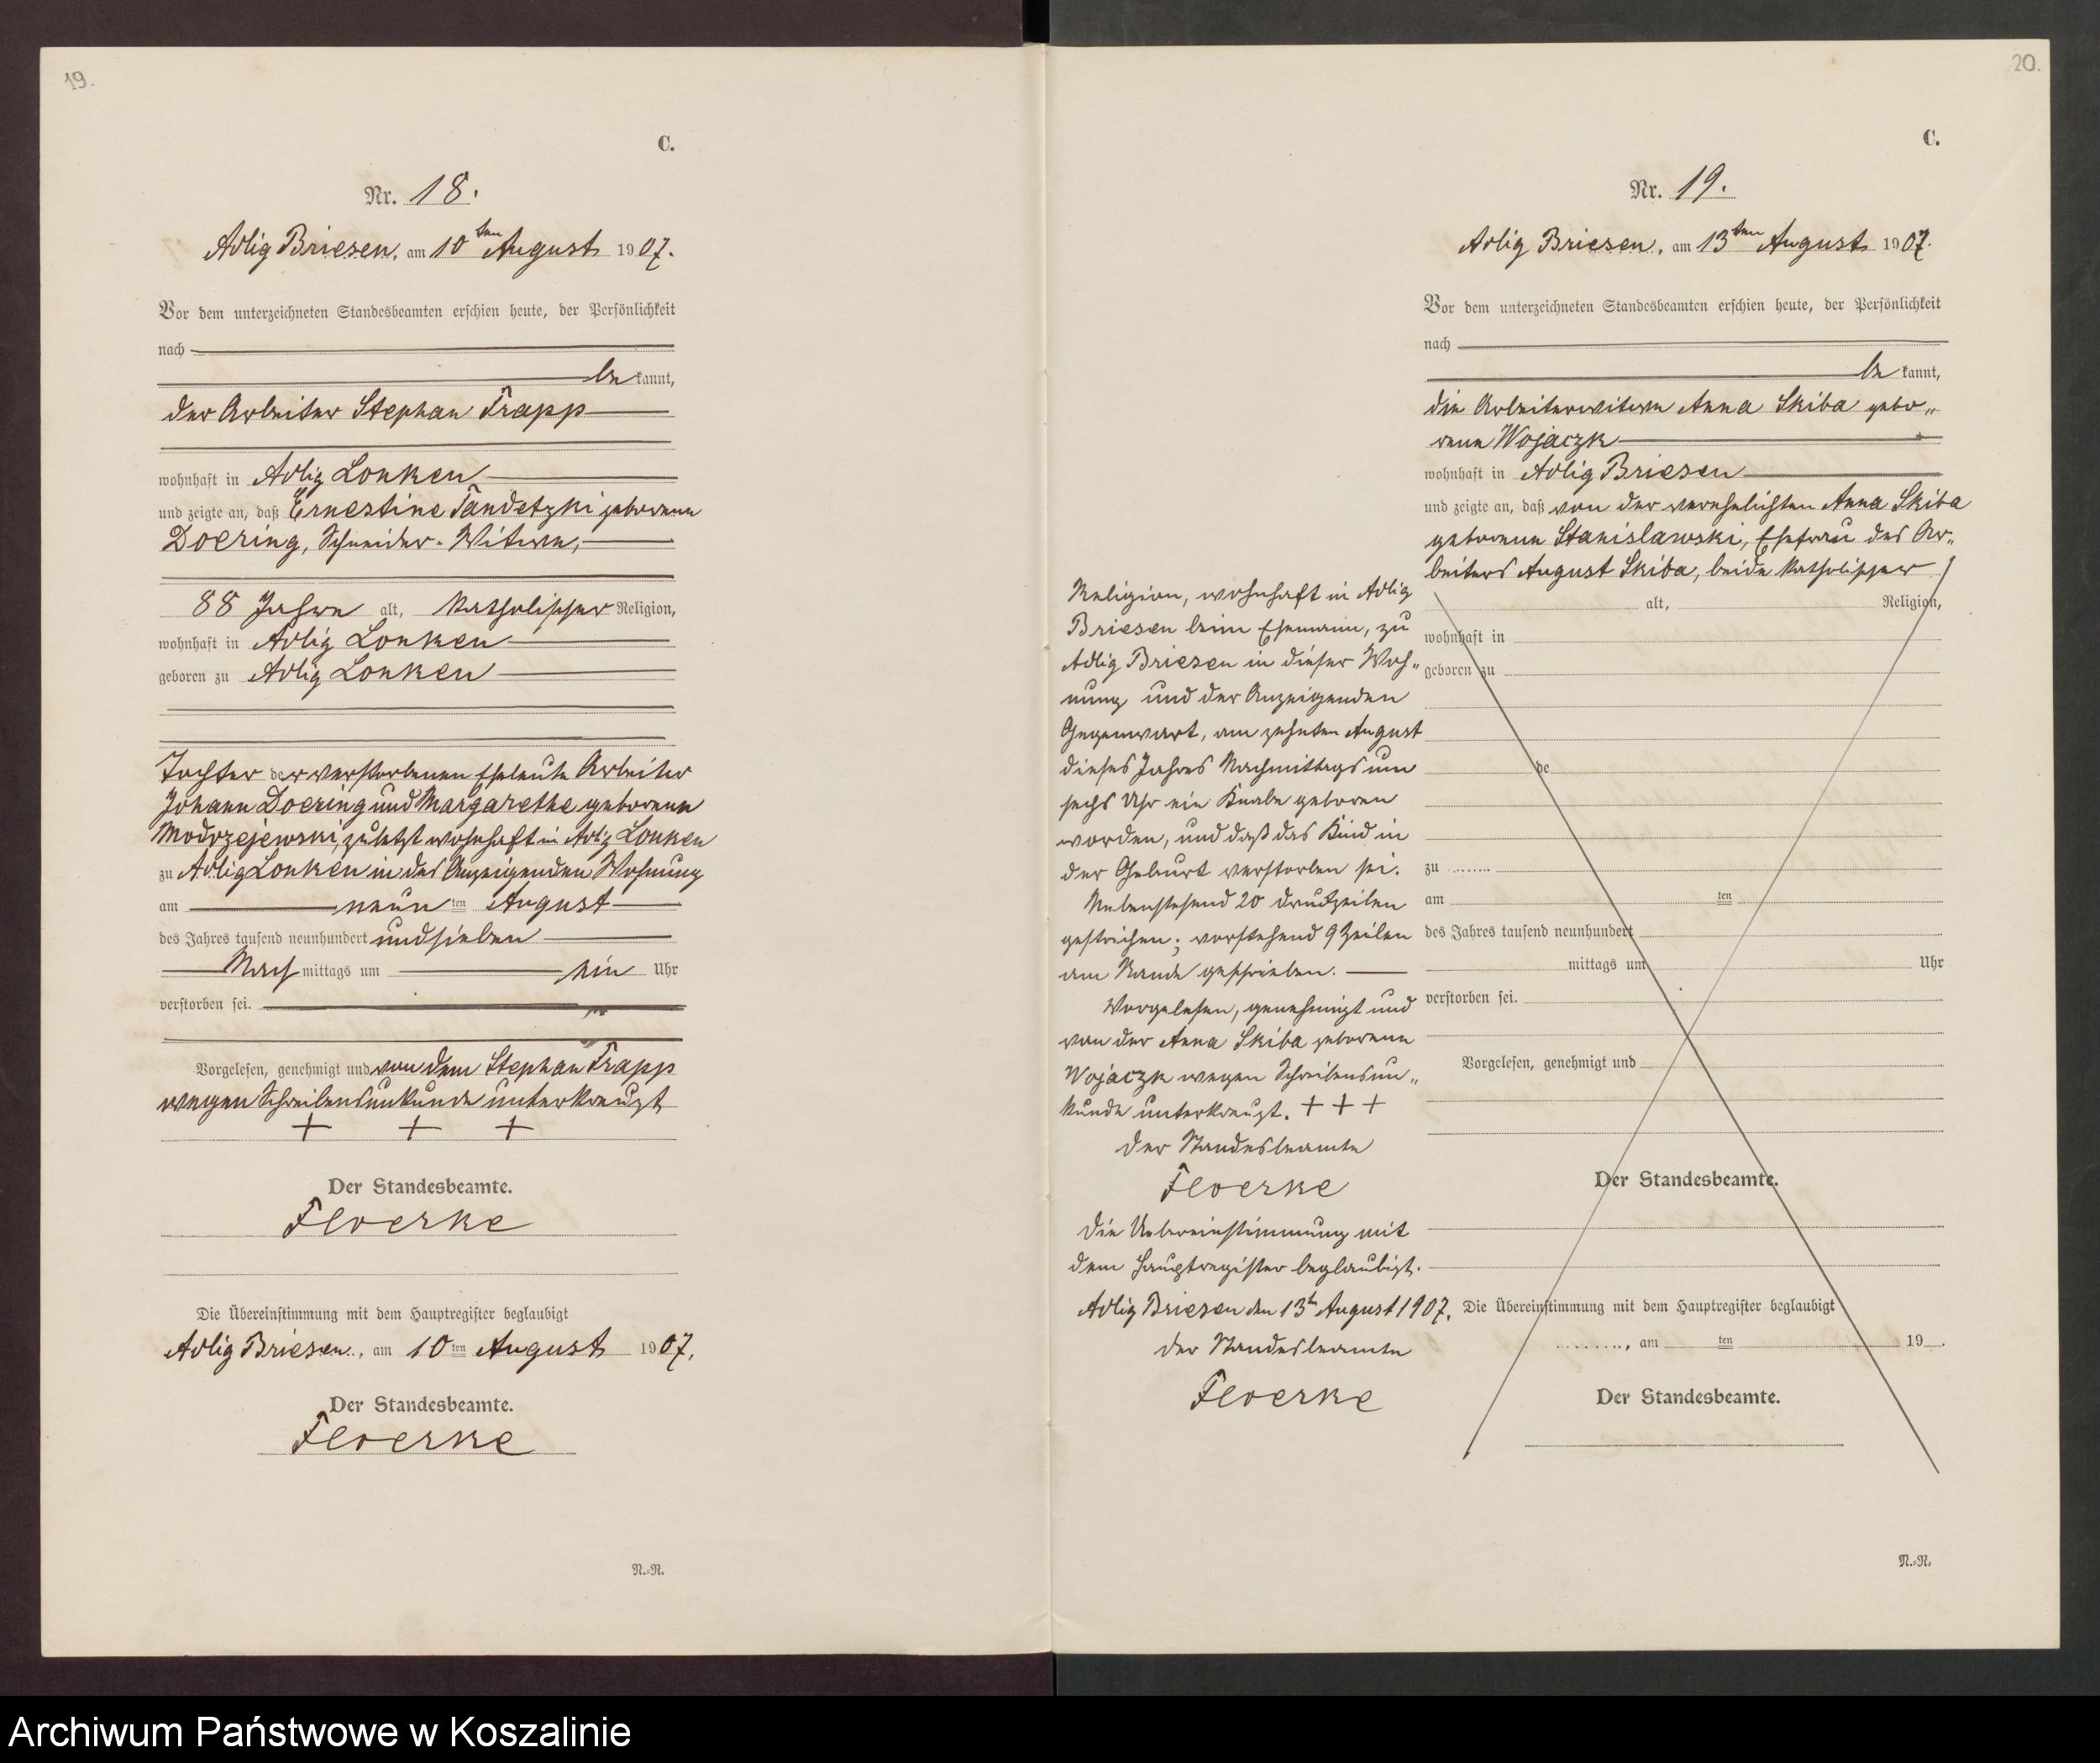 19.
C.
Nr. 18.
Adlig Briesen, am 10ten August 1907.
Vor dem unterzeichneten Standesbeamten erschien heute, der Persönlichkeit
nach
be kannt,
der Arbeiter Stephan Trapp
wohnhaft in Adlig Lonken
und zeigte an, daß Ernestine Tandetzki geborene
Doering, Schneider-Witwe,
88 Jahre alt, katholischer Religion,
wohnhaft in Adlig Lonken
geboren zu Adlig Lonken
Tochter der verstorbenen Eheleute Arbeiter
Johann Doering und Margarethe geborene
Modrzejewski, zuletzt wohnhaft in Adlig Lonken
zu Adlig Lonken in des Anzeigenden Wohnung
am neunten August
des Jahres tausend neunhundert und sieben
Nach mittags um ein Uhr
verstorben sei.
Vorgelesen, genehmigt und von dem Stephan Trapp
wegen Schreibensunkunde unterkreuzt
+ + +
Der Standesbeamte.
Floerke
Die Übereinstimmung mit dem Hauptregister beglaubigt
Adlig Briesen, am 10ten August 1907.
Der Standesbeamte.
Floerke
N.-R.
20.
C.
Nr. 19.
Adlig Briesen, am 13ten August 1907.
Vor dem unterzeichneten Standesbeamten erschien heute, der Persönlichkeit
nach
be kannt,
die Arbeiterwitwe Anna Skiba gebo„
rene Wojaczk
wohnhaft in Adlig Briesen
und zeigte an, daß von der verehelichten Anna Skiba
geborene Stanislawski, Ehefrau des Ar„
beiters August Skiba, beide katholischer
Religion, wohnhaft in Adlig
Briesen beim Ehemann, zu
Adlig Briesen in dieser Woh„
nung und der Anzeigenden
Gegenwart, am zehnten August
dieses Jahres Nachmittags um
sechs Uhr ein Knabe geboren
worden, und daß das Kind in
der Geburt verstorben sei.
Nebenstehend 20 Druckzeilen
gestrichen; vorstehend 9 Zeilen
am Rande geschrieben.
Vorgelesen, genehmigt und
von der Anna Skiba geborene
Wojaczk wegen Schreibensun„
kunde unterkreuzt. + + +
Der Standesbeamte
Floerke
Die Uebereinstimmung mit
dem Hauptregister beglaubigt.
Adlig Briesen den 13tn August 1907.
Der Standesbeamte
Floerke
alt, Religion,
wohnhaft in
geboren zu
de
zu
am ten
des Jahres tausend neunhundert
mittags um Uhr
verstorben sei.
Vorgelesen, genehmigt und
Der Standesbeamte.
Die Übereinstimmung mit dem Hauptregister beglaubigt
, am ten 19
Der Standesbeamte.
N.-R.
Archiwum Państwowe w Koszalinie